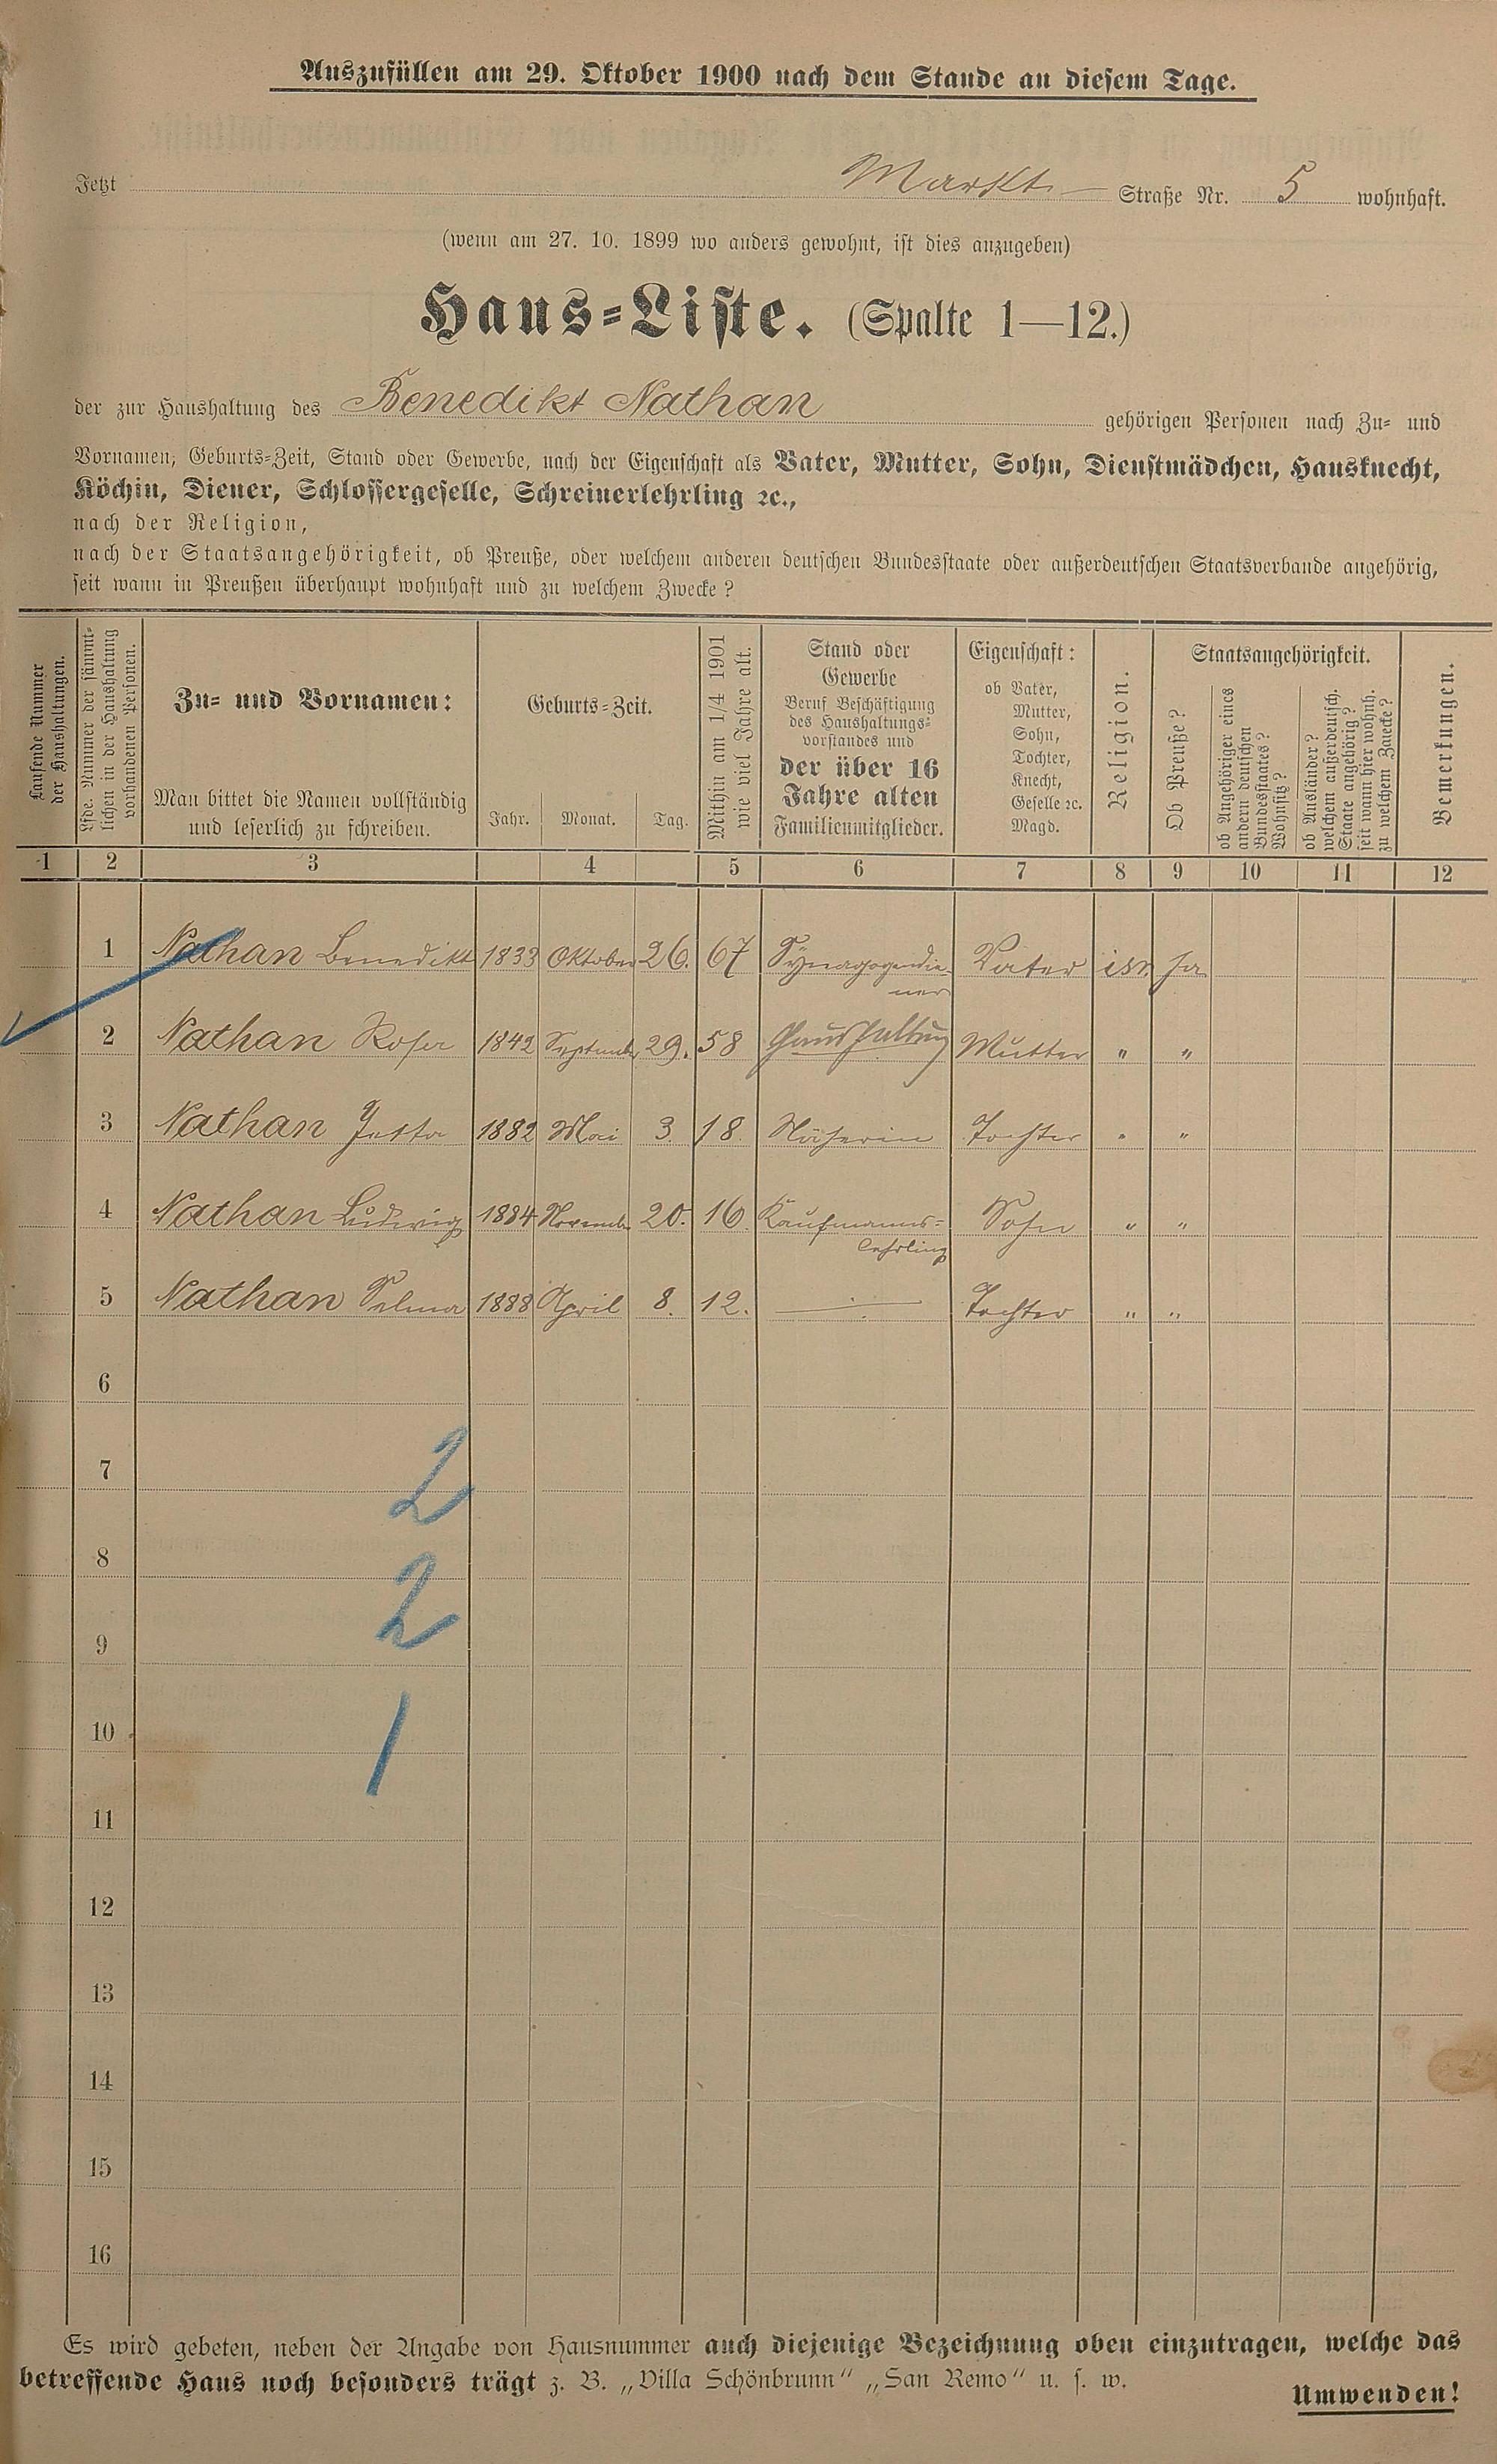 Auszufüllen am 29. Oktober 1900 nach dem Stande an diesem Tage.
Jetzt Markt- Straße Nr. 5 wohnhaft.
(wenn am 27. 10. 1899 wo anders gewohnt, ist dies anzugeben)
Haus-Liste. (Spalte 1—12.)
der zur Haushaltung des Benedikt Nathan gehörigen Personen nach Zu- und
Vornamen, Geburts-Zeit, Stand oder Gewerbe, nach der Eigenschaft als Vater, Mutter, Sohn, Dienstmädchen, Hausknecht,
Köchin, Diener, Schlossergeselle, Schreinerlehrling ꝛc.,
nach der Religion,
nach der Staatsangehörigkeit, ob Preuße, oder welchem anderen deutschen Bundesstaate oder außerdeutschen Staatsverbande angehörig,
seit wann in Preußen überhaupt wohnhaft und zu welchem Zwecke?
Laufende Nummer
der Haushaltungen.
Lfde. Nummer der sämmt-
lichen in der Haushaltung
vorhandenen Personen.
Zu- und Vornamen:
Man bittet die Namen vollständig
und leserlich zu schreiben.
Geburts-Zeit.
Jahr. Monat. Tag.
Mithin am 1/4 1901
wie viel Jahre alt.
Stand oder
Gewerbe
Beruf Beschäftigung
des Haushaltungs-
vorstandes und
der über 16
Jahre alten
Familienmitglieder.
Eigenschaft:
ob Vater,
Mutter,
Sohn,
Tochter,
Knecht,
Geselle ꝛc.
Magd.
Religion.
Staatsangehörigkeit.
Ob Preuße?
ob Angehöriger eines
andern deutschen
Bundesstaates?
Wohnsitz?
ob Ausländer?
welchem außerdeutsch.
Staate angehörig?
seit wann hier wohnh.
zu welchem Zwecke?
Bemerkungen.
1 2 3 4 5 6 7 8 9 10 11 12
1 Nathan Benedikt 1833 Oktober 26. 67 Synagogendie-
ner Vater isr. ja
2 Nathan Rosa 1842 September 29. 58 Haushaltung Mutter " "
3 Nathan Jetta 1882 Mai 3. 18. Näherin Tochter " "
4 Nathan Ludwig 1884 November 20. 16. Kaufmanns-
lehrling Sohn " "
5 Nathan Selma 1888 April 8. 12. Tochter " "
6
7
2
8
2
9
10
1
11
12
13
14
15
16
Es wird gebeten, neben der Angabe von Hausnummer auch diejenige Bezeichnung oben einzutragen, welche das
betreffende Haus noch besonders trägt z. B. „Villa Schönbrunn" „San Remo" u. s. w.
Umwenden!